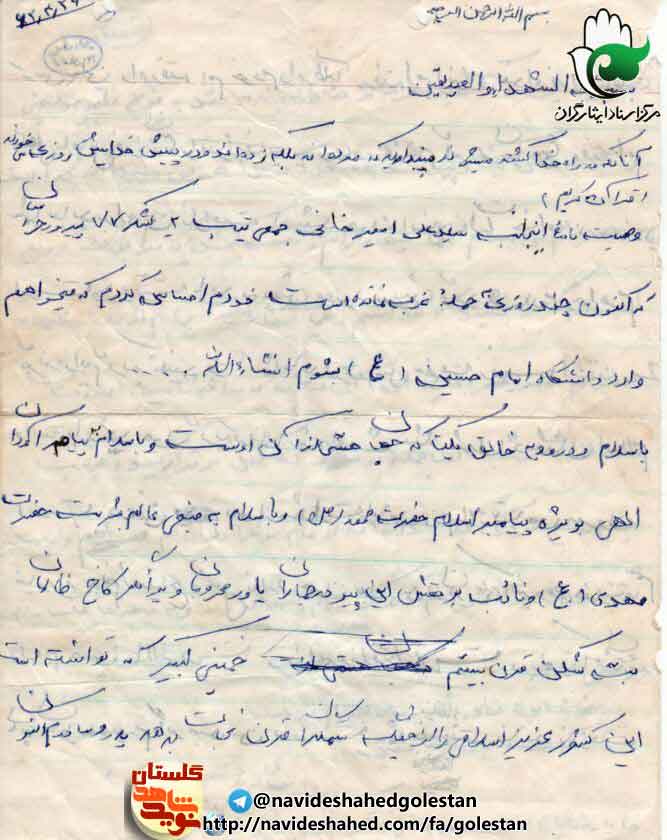 بسم الله الرحمن الرحیم
مرکز اسناد ایثارگران
الشهداء و الصدیقین
آنانکه در راه خدا کشته میشوند نپندارید که مرده اند بلکه زنده اند و در پیش خدایش روزی
(قرآن کریم)
وصیت نامهٔ اینجانب سیدعلی امیرخانی جمعی تیپ ۲ لشکر ۷۷ پیروز خراسان
که اکنون چند روزی به حمله نمانده است خودم احساس کردم که میخواهم
وارد دانشگاه امام حسین (ع) بشوم انشاءالله ....
باسلام و درود به خالق یکتا که جهان هستی از آن اوست و باسلام به پیامبران
الهی بویژه پیامبر اسلام حضرت محمد (ص) و باسلام به منجی عالم بشریت حضرت
مهدی (ع) و نائب بر حقش این پیر جماران یاور محرومان و ویرانگر کاخ ظالمان
بت شکن قرن بیستم خمینی کبیر که توانسته است
این کشور عزیز اسلامی را از ستمگران قرن نجات بدهد
گلستان
نوید شاهد
@navideshahedgolestan
http://navideshahed.com/fa/golestan